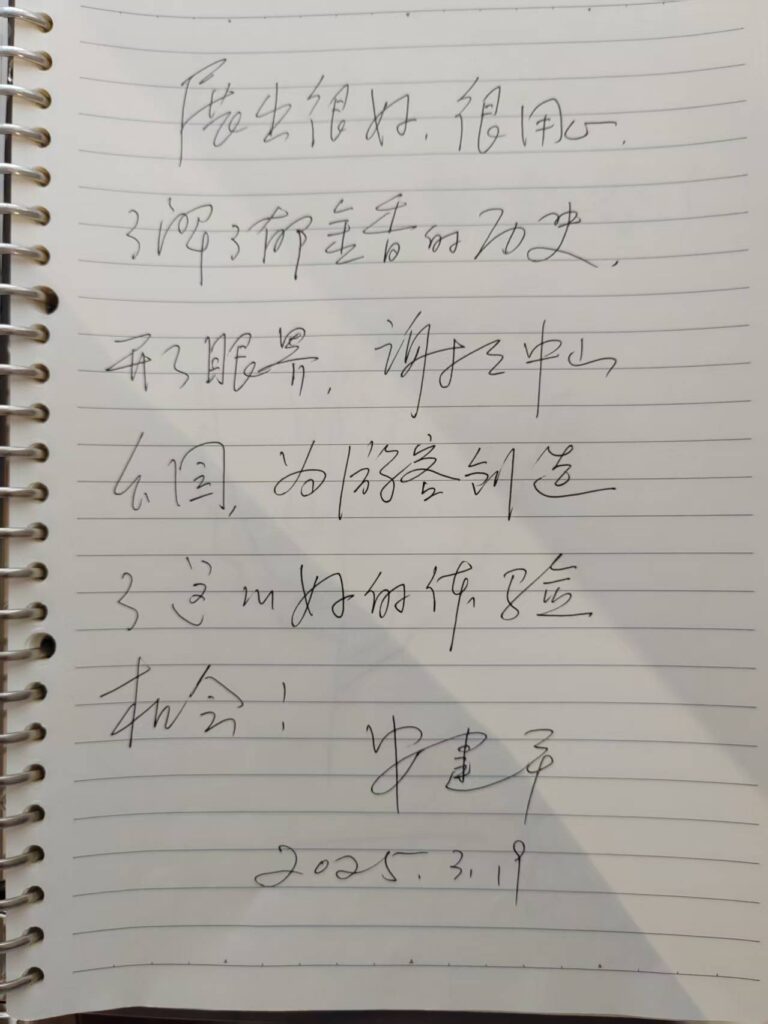 展出很好，很用心，
了解了郁金香的历史，
开了眼界，谢谢中山
公园，为游客创造
了这么好的体验
机会！
建平
2025.3.19